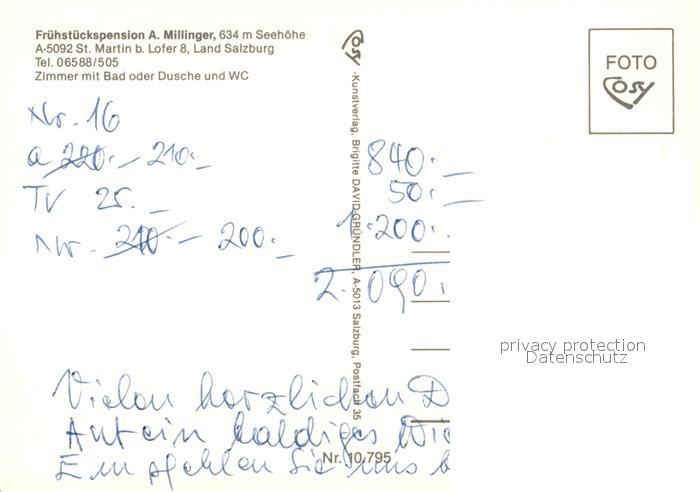 Frühstückspension A. Millinger, 634 m Seehöhe
A-5092 St. Martin b. Lofer 8, Land Salzburg
Tel. 06588/505
Zimmer mit Bad oder Dusche und WC
Cosy -Kunstverlag, Brigitte DAVID-GRÜNDLER, A-5013 Salzburg, Postfach 35
FOTO
Cosy
Nr. 16
a 220.- 210.-
TV 25.-
Nr. 210.- 200.-
840.-
50.-
1.200.-
2.090.
privacy protection
Datenschutz
Vielen herzlichen D
Auf ein baldiges Wie
Empfehlen Sie uns b
Nr. 10.795